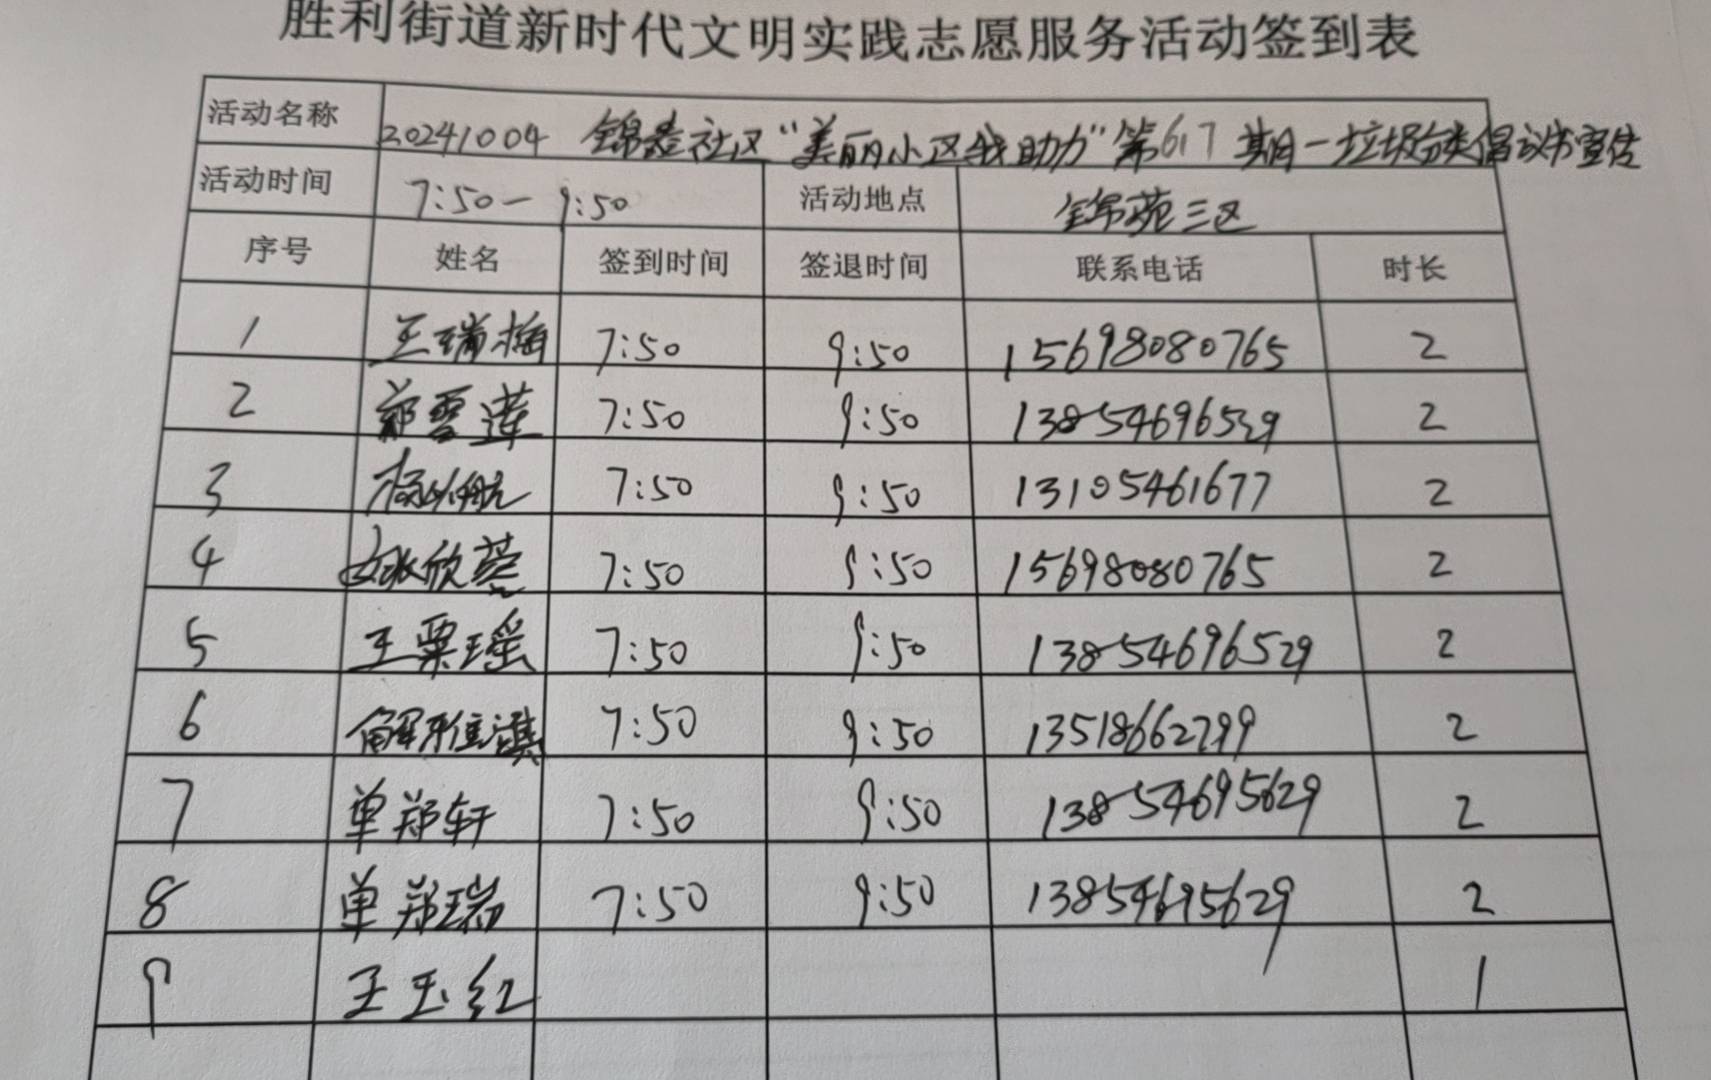 胜利街道新时代文明实践志愿服务活动签到表
活动名称 20241004 锦泰社区“美丽小区我助力”第617期—垃圾分类倡议书宣传
活动时间 7:50—9:50 活动地点 锦苑三区
序号 姓名 签到时间 签退时间 联系电话 时长
1 王瑞梅 7:50 9:50 15698080765 2
2 郭雪莲 7:50 9:50 13854696529 2
3 杨 航 7:50 9:50 13105461677 2
4 欣蓉 7:50 9:50 15698080765 2
5 王粟瑶 7:50 9:50 13854696529 2
6 解 淇 7:50 9:50 13518662799 2
7 单郑轩 7:50 9:50 13854695629 2
8 单郑瑞 7:50 9:50 13854695629 2
9 王玉红 1